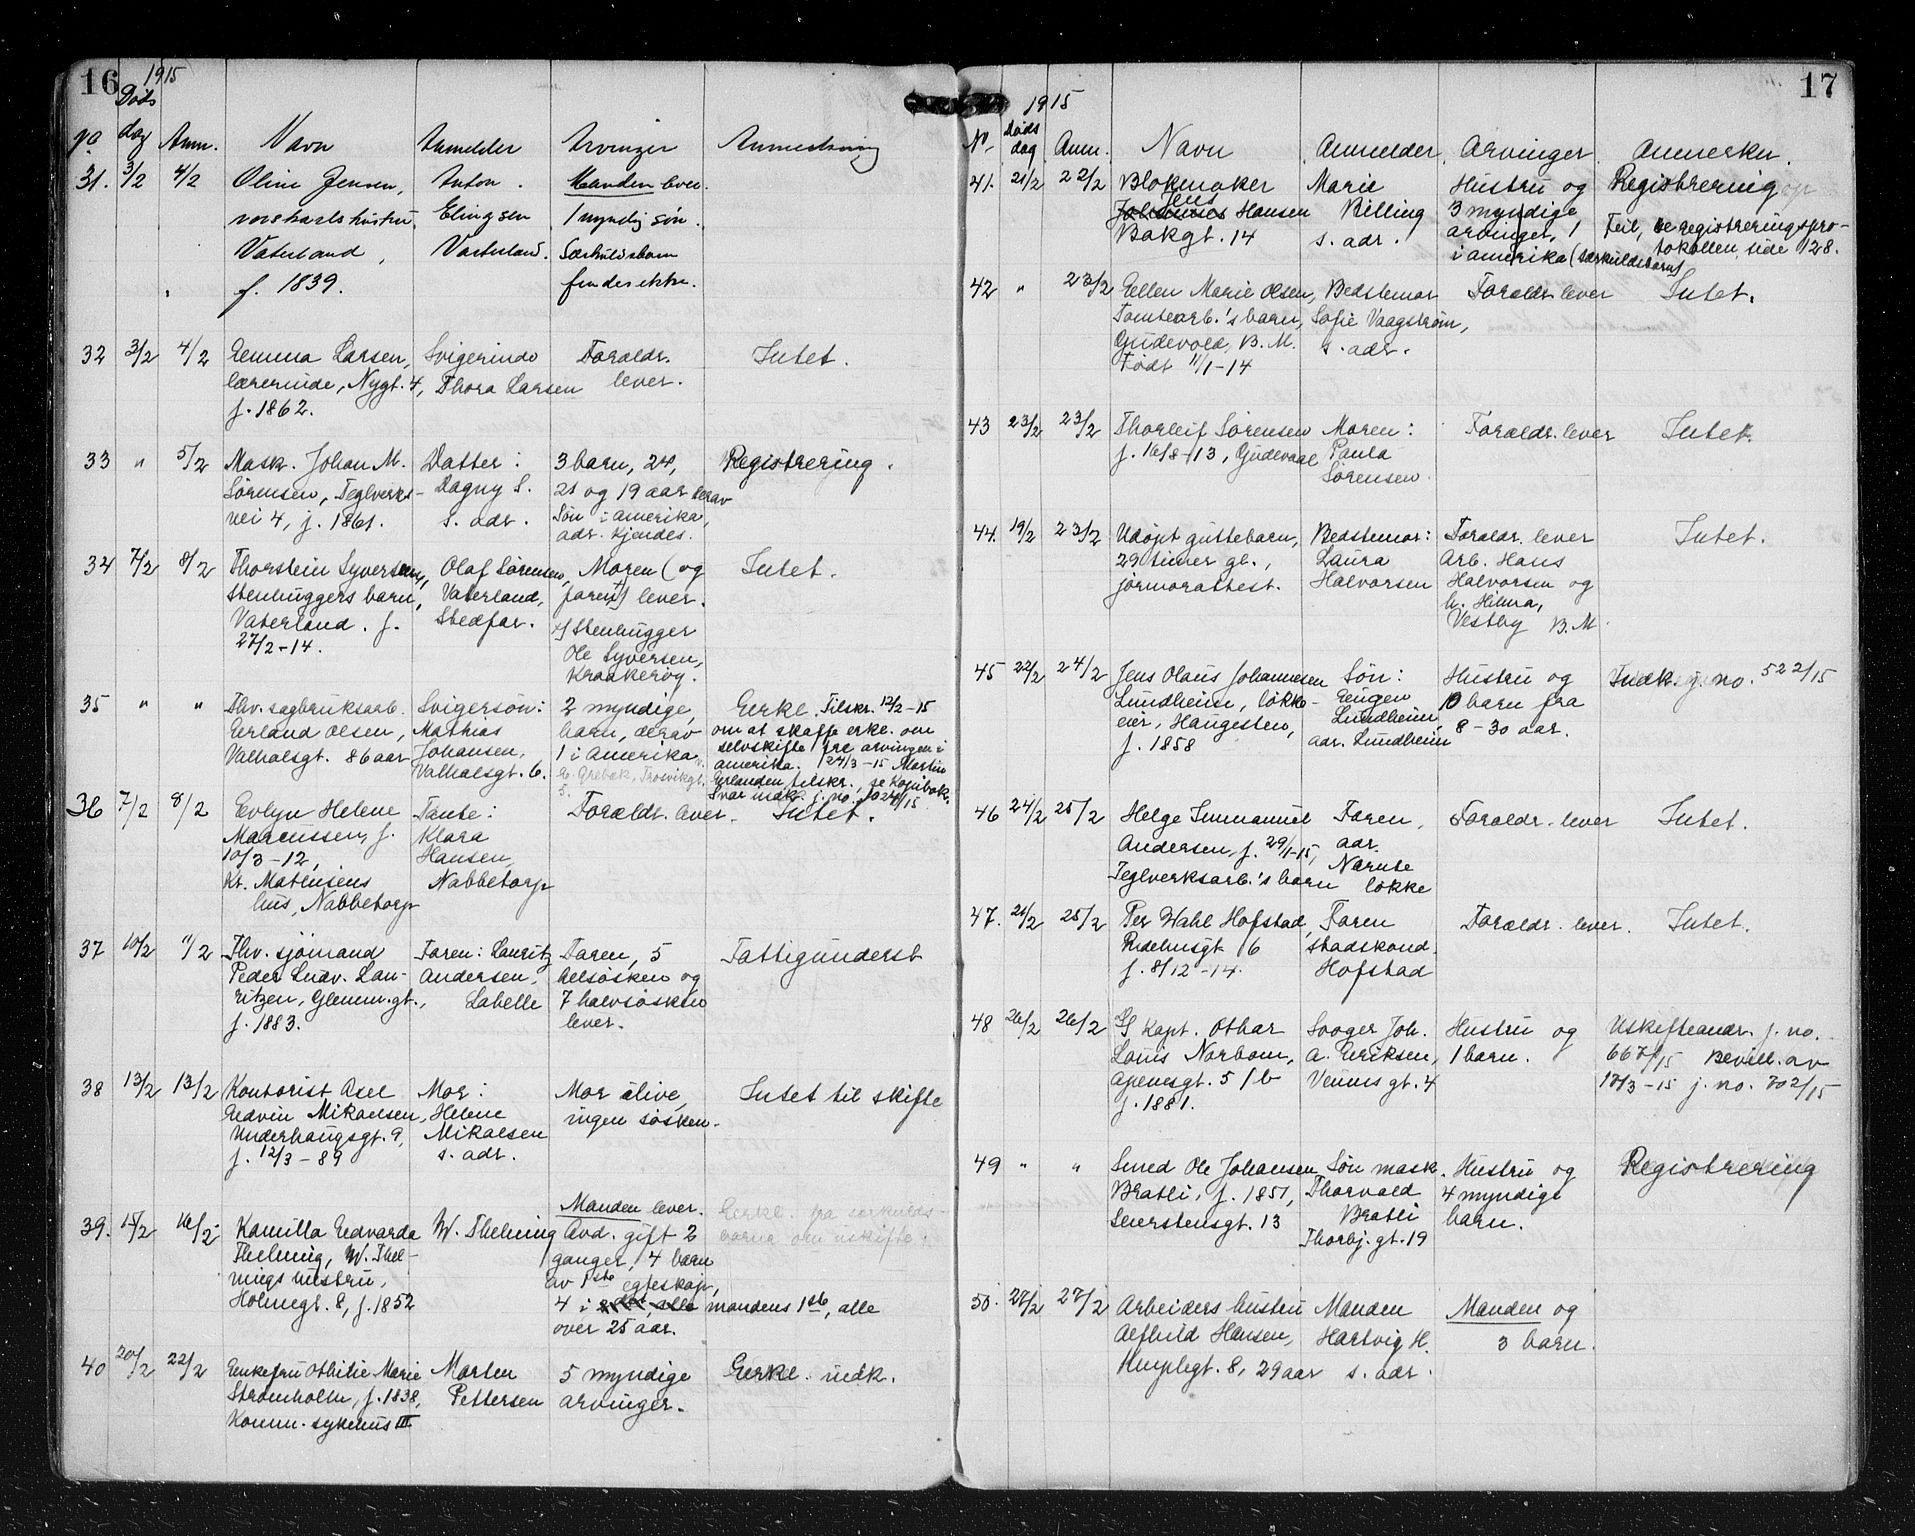 16
1915
Døds
No dag Anm. Navn Anmelder Arvinger Anmerkning
31. 3/2 4/2 Oline Jensen, Anton Manden lever.
Elingsen 1 myndig søn.
Vaterland, Vaterland. Særkuldsbarn
f. 1839. findes ikke.
32 3/2 4/2 Emma Larsen, Svigerinde Forældr. Intet.
lærerinde, Nygt. 4, Thora Larsen lever.
f. 1862.
33 " 5/2 Mask. Johan M. Datter: 3 barn, 24, Registrering.
Sørensen, Teglverks- Dagny S. 21 og 19 aar derav
vei 4, f. 1861. s. adr. Søn i Amerika,
adr. kjendes.
34 7/2 8/2 Thorstein Syversen, Olaf Sørensen, Moren (og Intet.
Stenhuggers barn, Vaterland, faren x) lever.
Vaterland. f. Stedfar. x) Stenhugger
27/2-14. Ole Syversen,
Kraakerøy.
35 " " Fhv. sagbruksarb. Svigersøn: 2 myndige, Erkl. Tilskr. 12/2-15
Erland Olsen, Mathias barn, derav om at skaffe erkl. om
Valhalsgt. 86 aar Johansen, 1 i Amerika selvskifte fra arvingen i
Valhalsgt. 6. Grebak, Trosvikgt. Amerika. 24/3-15 Martin
5. Erlandsen tilskr., se kopibok.
Svar indk. j. no. 1024/15
36 7/2 8/2 Evlyn Helene Tante: Forældr. lever. Intet.
Marcussen, f. Klara
10/3-12, Hansen,
Kr. Mathisens Nabbetorp
hus, Nabbetorp
37 10/2 11/2 Fhv. sjømand Faren: Lauritz Faren, 5 Fattigunderst
Peder Ludv. Lau- Andersen, helsøsken og
ritzen, Glemm.gt., Labelle 7 halvsøsken
f. 1883. lever.
38 13/2 13/2 Kontorist Axel Mor: Mor ilive, Intet til skifte
Edvin Mikaelsen, Helene ingen søsken.
Underhaugsgt. 9, Mikalsen
f. 12/3-89 s. adr.
Manden lever. Erkl. fra særkulds-
39. 15/2 16/2 Kamilla Edvarda W. Thelning Avd. gift 2 barna om uskifte.
Thelning, W. Thel- ganger, 4 barn
nings hustru, av 1ste egteskap,
Holmegt. 8, f. 1852 4 i mandens 1ste, alle
over 25 aar.
40 20/2 22/2 Enkefru Othilie Marie Morten 5 myndige Erkl. indk.
Strømholm, f. 1838, Pettersen arvinger.
Komm. sykehus III
17
1915
Døds
No. dag Anm. Navn Anmelder. Arvinger. Anmerkn.
41. 21/2 22/2 Blokmaker Marie Hustru og Registrering
Jens
Johannes Hansen Billing 3 myndige Feil, se registreringspro-
Bakgt. 14 s. adr. arvinger, 1 tokollen side 128.
i Amerika (særkuldsbarn)
42 " 23/2 Ellen Marie Olsen, Bedstemor Forældr. lever Intet.
Tomtearb.'s barn, Sofie Vaagstrøm,
Gudevold, B. M. s. adr.
Født 11/1-14
43 23/2 23/2 Thorleif Sørensen Moren: Forældr. lever Intet.
f. 16/8-13, Gudevold Paula
Sørensen.
44. 19/2 23/2 Udøpt guttebarn, Bedstemor: Forældr. lever Intet.
29 timer gl., Laura Arb. Hans
jormorattest. Halvorsen Halvorsen og
h. Hilma,
Vestby B. M.
45 22/2 24/2 Jens Olaus Johannesen Søn: Hustru og Indk. j. no. 522/15
Lundheim, løkke- Eugen 10 barn fra
eier, Haugesten, Lundheim, 8-30 aar.
f. 1858 adr. Lundheim
46 24/2 25/2 Helge Immanuel Faren, Forældr. lever Intet.
Andersen, f. 29/1-15, adr.
Teglverksarb.'s barn Nørnte løkke
47. 24/2 25/2 Per Wahl Hofstad, Faren Forældr. lever. Intet.
Ridehusgt 6 stadskond.
f. 8/12-14. Hofstad
48 26/2 26/2 Kapt. Othar Svoger Joh. Hustru og Uskifteandr. j. no.
Louis Norbom, A. Eriksen, 1 barn. 667/15 Bevill. av
Apenesgt. 5 f b Vennis gt. 4 17/3-15 j. no. 702/15
f. 1881.
49 " " Smed Ole Johansen Søn mask. Hustru og Registrering
Bratli, f. 1851, Thorvald 4 myndige
Seierstensgt. 13 Bratli barn.
Thorbj. gt. 19
50. 27/2 27/2 Arbeiders hustru Manden Manden og
Alfhild Hansen, Hartvig H. 3 barn.
29 aar s. adr.